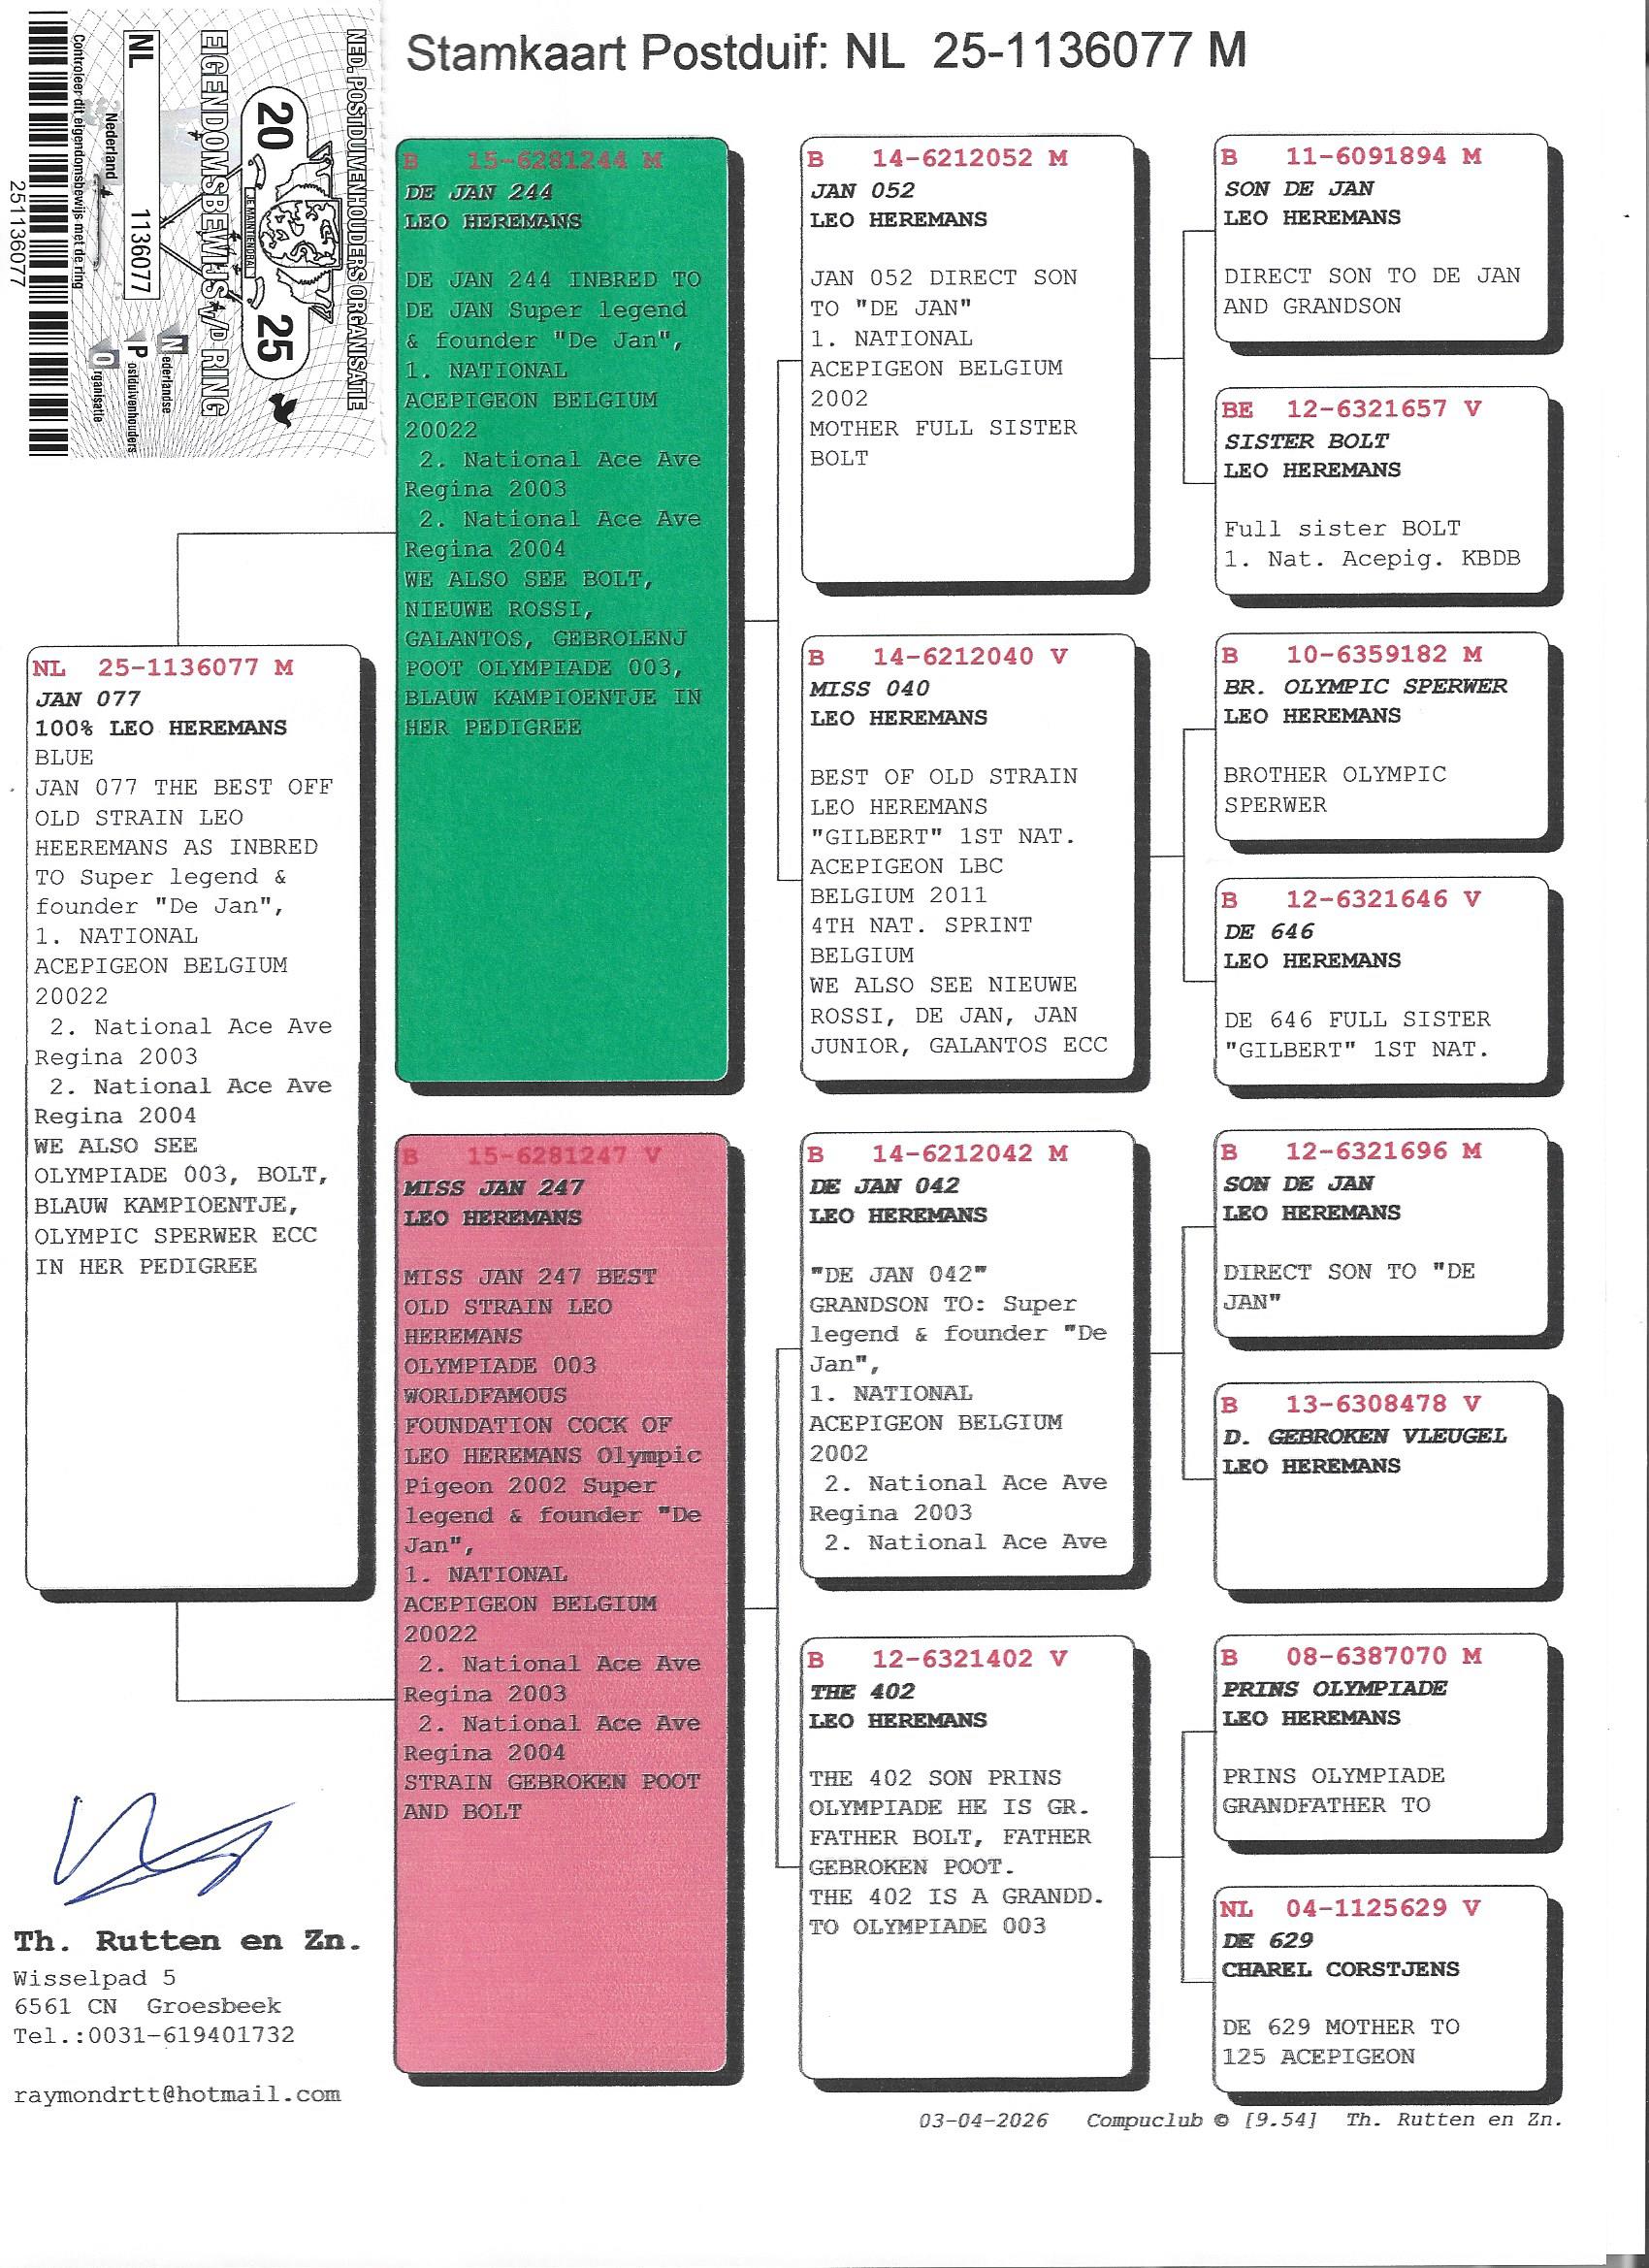 Stamkaart Postduif: NL 25-1136077 M
NED. POSTDUIVENHOUDERS ORGANISATIE
20 25
JE MAINTIENDRAI
EIGENDOMSBEWIJS v/D RING
Nederlandse
Postduivenhouders
Organisatie
NL 1136077
Nederland
Controleer dit eigendomsbewijs met de ring
251136077
NL 25-1136077 M
JAN 077
100% LEO HEREMANS
BLUE
JAN 077 THE BEST OFF
OLD STRAIN LEO
HEEREMANS AS INBRED
TO Super legend &
founder "De Jan",
1. NATIONAL
ACEPIGEON BELGIUM
20022
2. National Ace Ave
Regina 2003
2. National Ace Ave
Regina 2004
WE ALSO SEE
OLYMPIADE 003, BOLT,
BLAUW KAMPIOENTJE,
OLYMPIC SPERWER ECC
IN HER PEDIGREE
B 15-6281244 M
DE JAN 244
LEO HEREMANS
DE JAN 244 INBRED TO
DE JAN Super legend
& founder "De Jan",
1. NATIONAL
ACEPIGEON BELGIUM
20022
2. National Ace Ave
Regina 2003
2. National Ace Ave
Regina 2004
WE ALSO SEE BOLT,
NIEUWE ROSSI,
GALANTOS, GEBROLENJ
POOT OLYMPIADE 003,
BLAUW KAMPIOENTJE IN
HER PEDIGREE
B 15-6281247 V
MISS JAN 247
LEO HEREMANS
MISS JAN 247 BEST
OLD STRAIN LEO
HEREMANS
OLYMPIADE 003
WORLDFAMOUS
FOUNDATION COCK OF
LEO HEREMANS Olympic
Pigeon 2002 Super
legend & founder "De
Jan",
1. NATIONAL
ACEPIGEON BELGIUM
20022
2. National Ace Ave
Regina 2003
2. National Ace Ave
Regina 2004
STRAIN GEBROKEN POOT
AND BOLT
B 14-6212052 M
JAN 052
LEO HEREMANS
JAN 052 DIRECT SON
TO "DE JAN"
1. NATIONAL
ACEPIGEON BELGIUM
2002
MOTHER FULL SISTER
BOLT
B 14-6212040 V
MISS 040
LEO HEREMANS
BEST OF OLD STRAIN
LEO HEREMANS
"GILBERT" 1ST NAT.
ACEPIGEON LBC
BELGIUM 2011
4TH NAT. SPRINT
BELGIUM
WE ALSO SEE NIEUWE
ROSSI, DE JAN, JAN
JUNIOR, GALANTOS ECC
B 14-6212042 M
DE JAN 042
LEO HEREMANS
"DE JAN 042"
GRANDSON TO: Super
legend & founder "De
Jan",
1. NATIONAL
ACEPIGEON BELGIUM
2002
2. National Ace Ave
Regina 2003
2. National Ace Ave
B 12-6321402 V
THE 402
LEO HEREMANS
THE 402 SON PRINS
OLYMPIADE HE IS GR.
FATHER BOLT, FATHER
GEBROKEN POOT.
THE 402 IS A GRANDD.
TO OLYMPIADE 003
B 11-6091894 M
SON DE JAN
LEO HEREMANS
DIRECT SON TO DE JAN
AND GRANDSON
BE 12-6321657 V
SISTER BOLT
LEO HEREMANS
Full sister BOLT
1. Nat. Acepig. KBDB
B 10-6359182 M
BR. OLYMPIC SPERWER
LEO HEREMANS
BROTHER OLYMPIC
SPERWER
B 12-6321646 V
DE 646
LEO HEREMANS
DE 646 FULL SISTER
"GILBERT" 1ST NAT.
B 12-6321696 M
SON DE JAN
LEO HEREMANS
DIRECT SON TO "DE
JAN"
B 13-6308478 V
D. GEBROKEN VLEUGEL
LEO HEREMANS
B 08-6387070 M
PRINS OLYMPIADE
LEO HEREMANS
PRINS OLYMPIADE
GRANDFATHER TO
NL 04-1125629 V
DE 629
CHAREL CORSTJENS
DE 629 MOTHER TO
125 ACEPIGEON
Th. Rutten en Zn.
Wisselpad 5
6561 CN Groesbeek
Tel.:0031-619401732
raymondrtt@hotmail.com
03-04-2026 Compuclub © [9.54] Th. Rutten en Zn.